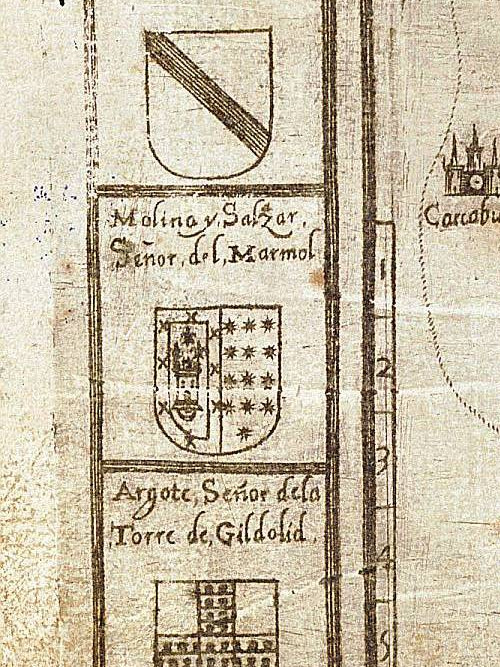 Molina y, Salazar,
Señor, del, Marmol
Argote, Señor dela
Torre de, Gildolid.
1
2
3
4
5